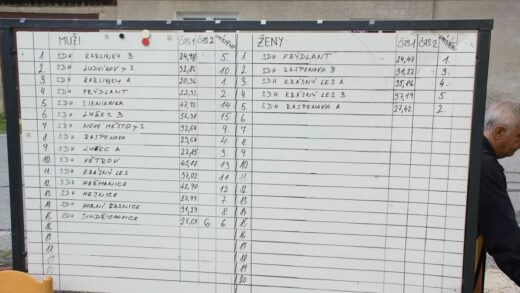 MUŽI ČAS 1 ČAS 2
1 SDH KARLINKY B 24,98 5.
2 SDH LUDVÍKOV p S. 10
3 SDH KARLINKY A 20,96 1
4 SDH FRÝDLANT 2
5 SDH SIENIAWKA 47,91 14
6 SDH LUŽEC B 15
7 SDH NOVÉ MĚSTO p S. 9
8 SDH RASPENAVA 23,64 4
9 SDH LUŽEC A 3
10 SDH VĚTROV 45,87 13
11 SDH KRÁSNÝ LES 11
12 SDH HEŘMANICE 42,90 12
13 SDH HEJNICE 27,93 7
14 SDH HORNÍ ŘASNICE 8
15 SDH JINDŘICHOVICE 6. 6.
16
17
18
19
20
ŽENY ČAS 1 ČAS 2
1 SDH FRÝDLANT 24,47 1.
2 SDH RASPENAVA B 3.
3 SDH KRÁSNÝ LES A 4.
4 SDH KRÁSNÝ LES B 5
5 SDH RASPENAVA A 27,42 2
6
7
8
9
10
11
12
13
14
15
16
17
18
19
20